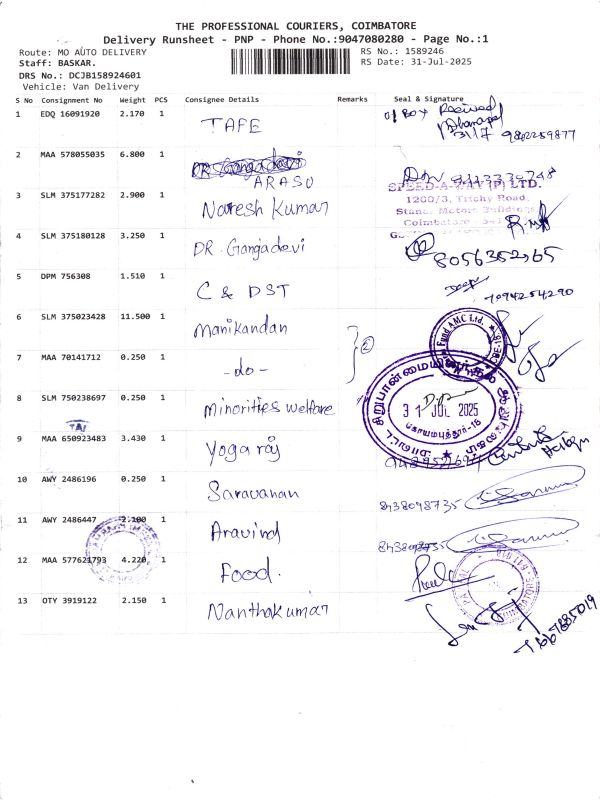 THE PROFESSIONAL COURIERS, COIMBATORE
Delivery Runsheet - PNP - Phone No.:9047080280 - Page No.:1
Route: MO AUTO DELIVERY RS No.: 1589246
Staff: BASKAR. RS Date: 31-Jul-2025
DRS No.: DCJB158924601
Vehicle: Van Delivery
S No Consignment No Weight PCS Consignee Details Remarks Seal & Signature
1 EDQ 16091920 2.170 1 TAFE 01 Box Received
31/7 9802259877
2 MAA 578055035 6.800 1 DR Gangadevi
ARASU
SPEED-A-WAY (P) LTD.
1200/3, Trichy Road,
Stanes Motors Buildings
Coimbatore
3 SLM 375177282 2.900 1 Naresh Kumar
4 SLM 375180128 3.250 1 DR. Gangadevi 8056352765
5 DPM 756308 1.510 1 C & DST 7094254290
6 SLM 375023428 11.500 1 Manikandan 2
7 MAA 70141712 0.250 1 -do-
8 SLM 750238697 0.250 1 minorities welfare
31 JUL 2025
கோயமபுத்தூர்-18
TAJ
9 MAA 650923483 3.430 1 Yogaraj
10 AWY 2486196 0.250 1 Saravanan 8438098735
11 AWY 2486447 2.100 1 Aravind 8438098735
12 MAA 577621793 4.220 1 Food.
13 OTY 3919122 2.150 1 Nanthakumar